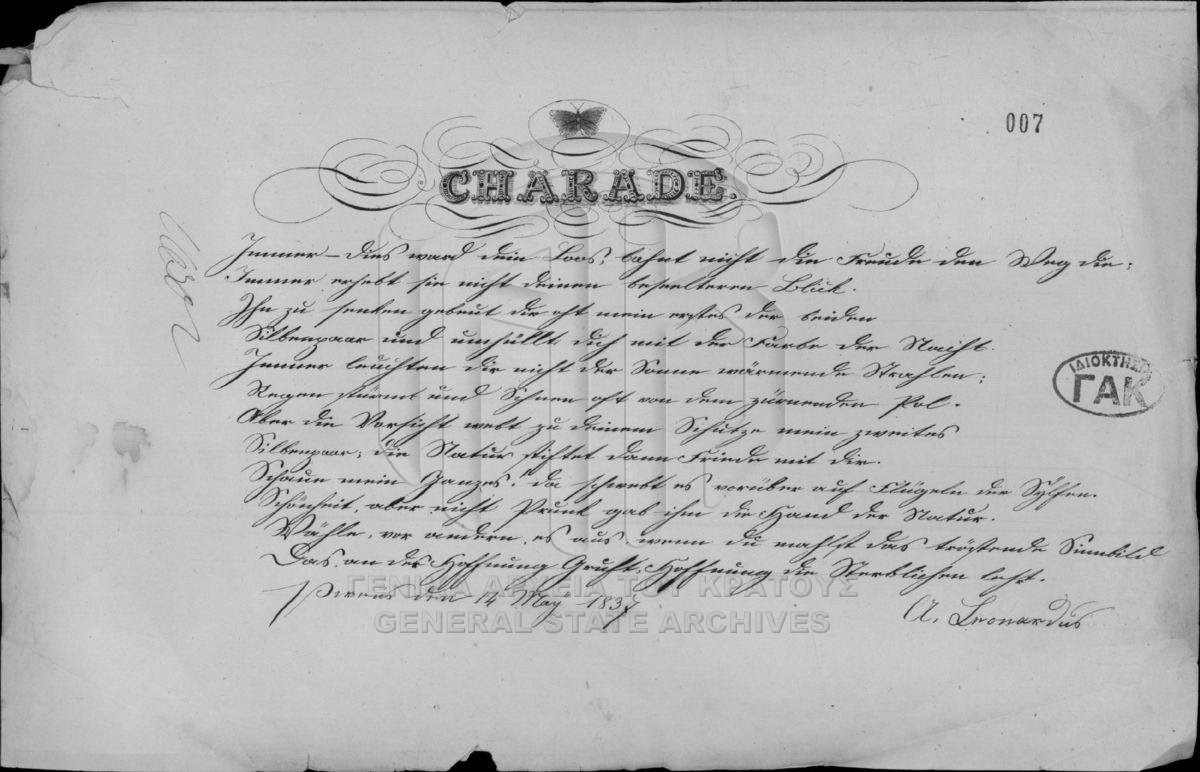 007
CHARADE.
Immer – dies ward dein Loos, bahnt nicht die Freude den Weg dir;
Immer erhebt sie nicht deinen beseelteren Blick.
Ihn zu senken gebeut dir oft mein erstes der beiden
Silbenpaar und umhüllt dich mit der Farbe der Nacht.
Immer leuchten dir nicht der Sonne wärmende Strahlen;
Regen stürmt und Schnee oft von dem zürnenden Pol.
Aber die Vorsicht webt zu deinem Schutze mein zweites
Silbenpaar; die Natur stiftet dann Friede mit dir.
Schaue mein Ganzes! da schwebt es vorüber auf Flügeln der Sylfen.
Schönheit, aber nicht Prunk gab ihm die Hand der Natur.
Wähle, vor andern, es aus, wenn du mahlst das tröstende Sinnbild
Das, an der Hoffnung Gruft, Hoffnung die Sterblichen lehrt.
Pireus den 14 May 1837
A. Leonardus
ΙΔΙΟΚΤΗΣΙΑ
ΓΑΚ
ΓΕΝΙΚΑ ΑΡΧΕΙΑ ΤΟΥ ΚΡΑΤΟΥΣ
GENERAL STATE ARCHIVES